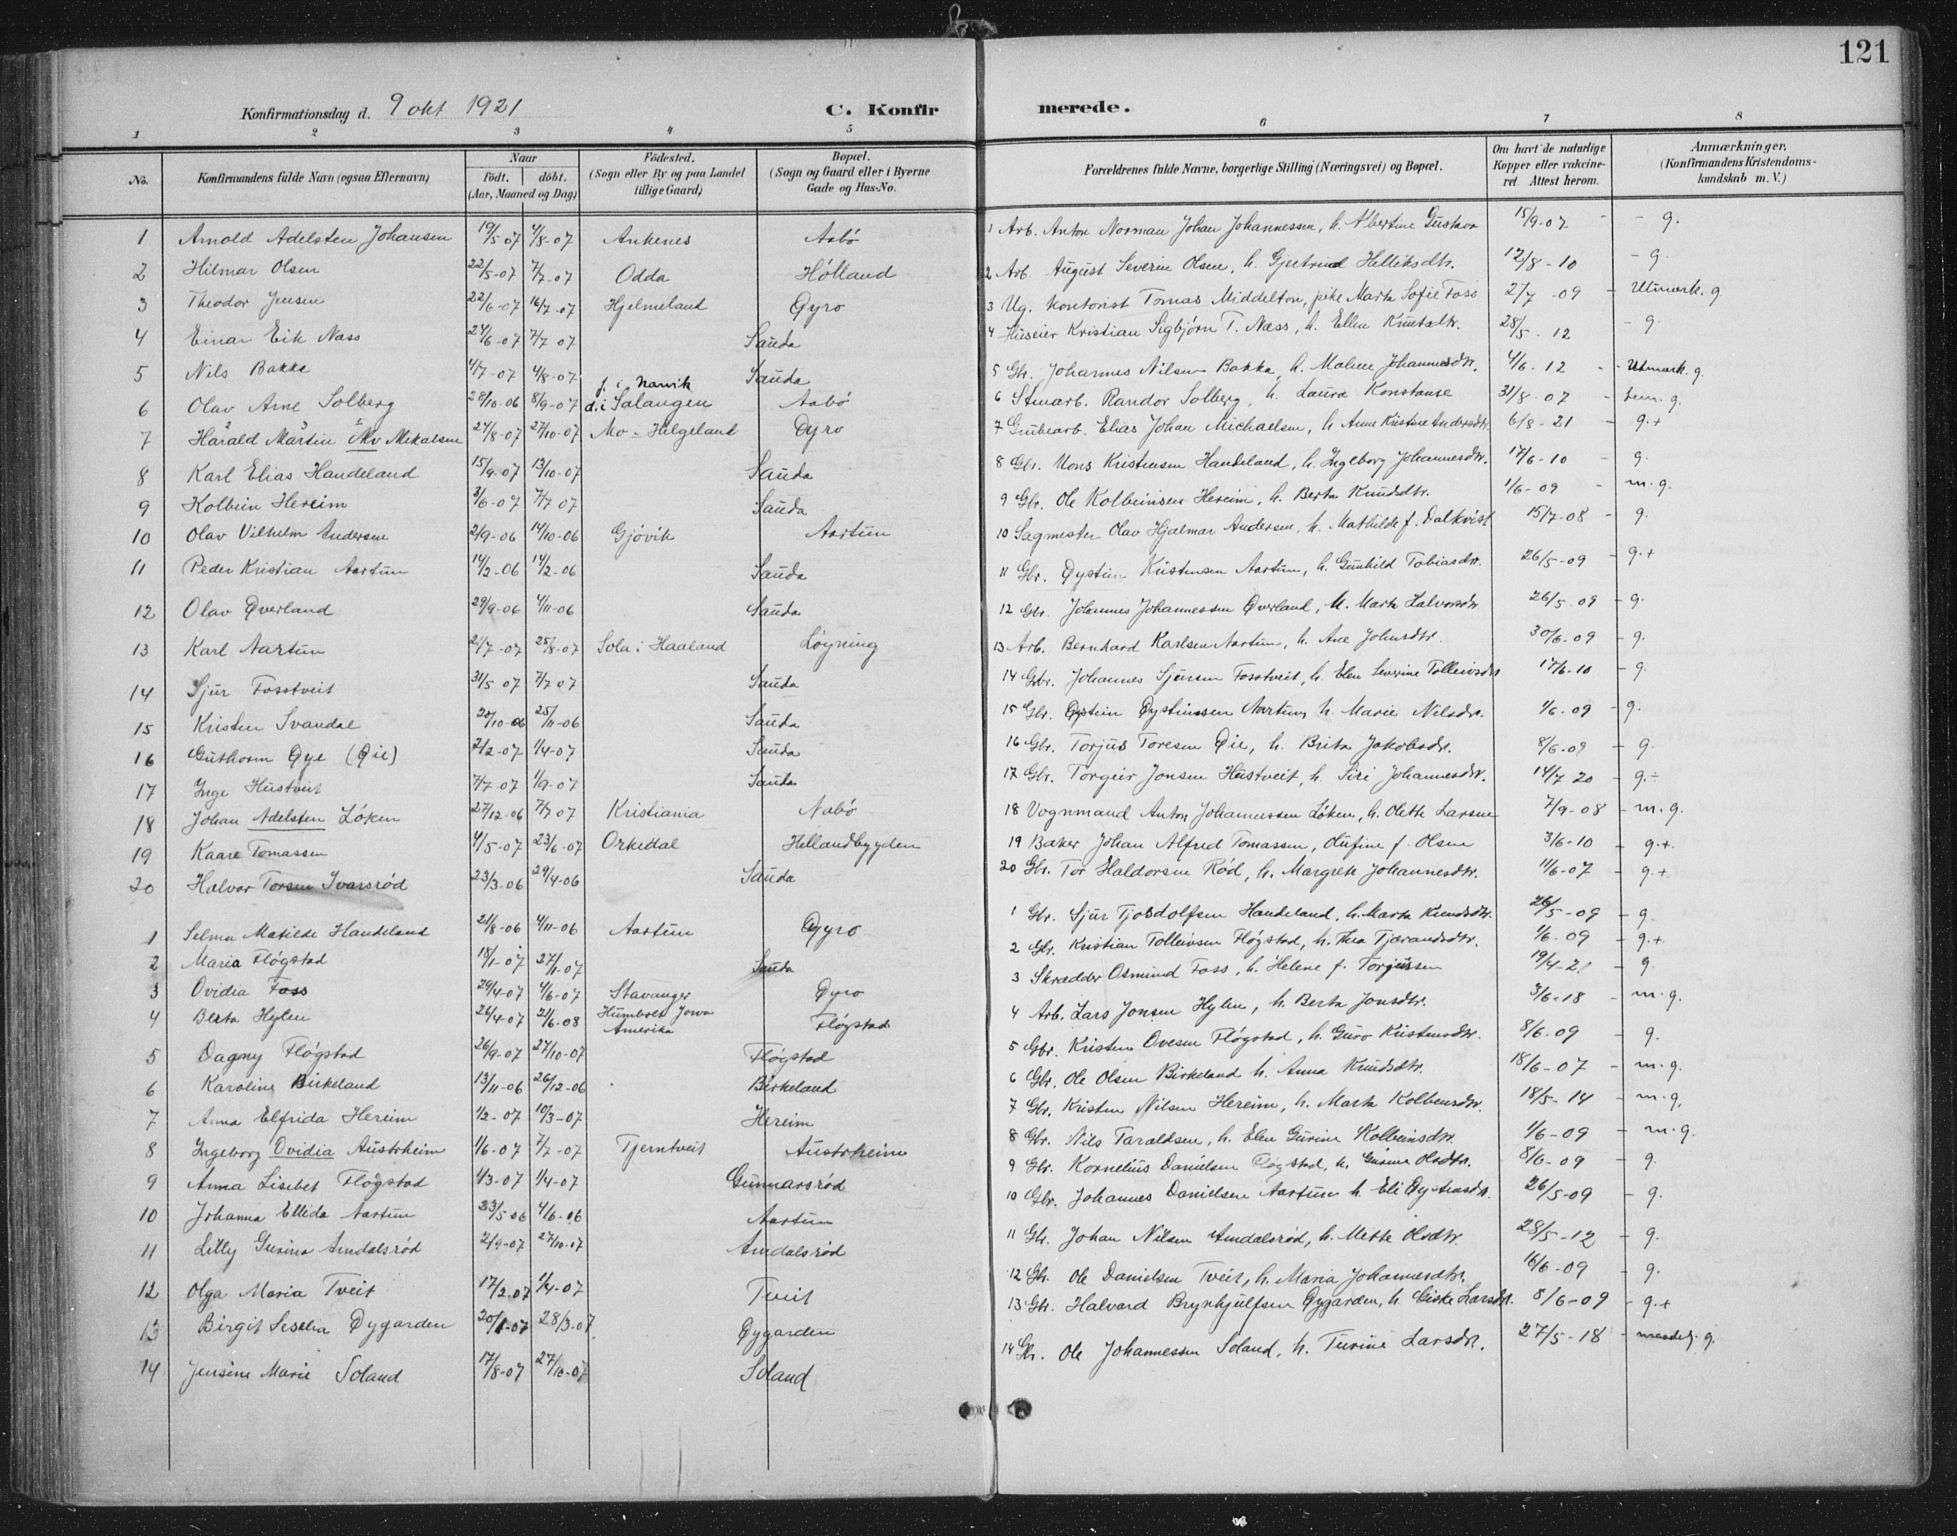 121
Konfirmationsdag d. 9 okt 1921
C. Konfirmerede.
1 2 3 4 5 6 7 8
No.
Konfirmandens fulde Navn (ogsaa Efternavn)
Naar
født. døbt.
(Aar, Maaned og Dag)
Fødested.
(Sogn eller By og paa Landet
tillige Gaard)
Bopæl.
(Sogn og Gaard eller i Byerne
Gade og Hus-No.
Forældrenes fulde Navne, borgerlige Stilling (Næringsvei) og Bopæl.
Om havt de naturlige
Kopper eller vakcine-
ret Attest herom.
Anmærkninger.
(Konfirmandens Kristendoms-
kundskab m. V.)
1 Arnold Adelsten Johansen 19/5 07 4/8-07 Ankenes Aabø 1 Arb. Anton Norman Johan Johannessen, h. Albertine Gustava 15/9-07 - g.
2 Hilmar Olsen 22/5-07 7/7-07 Odda Hølland 2 Arb. August Severin Olsen, h. Gjertrud Helliksdtr. 12/8-10 - g.
3 Theodor Jensen 22/6-07 16/7-07 Hjelmeland Øyro 3 Ug. kontorist Tomas Middelton, pike Marta Sofie Foss 27/7-09 - Utmerk. g
4 Einar Eik Næss 24/6-07 7/7 07 Sauda 4 Huseier Kristian Sigbjørn T. Næss, h. Ellen Knutsdtr. 28/5-12 - g.
5 Nils Bakka 4/7-07 4/8-07 Sauda 5 Gbr. Johannes Nilsen Bakka, h. Malene Johannesdtr. 4/6-12 - Utmerk. g.
6 Olav Arne Solberg 28/10-06 8/9-07 f. i Narvik d. i Salangen Aabø 6 Stenarb. Randor Solberg, h. Laura Konstanse 31/8-07 - g.
7 Harald Martin Mikalsen 24/8-07 27/10-07 Mo - Helgeland Øyro 7 Grubearb. Elias Johan Michaelsen, h. Anne Kristine Andersdtr. 6/8-21 - g.+
8 Karl Elias Handeland 15/9-07 13/10-07 Sauda 8 Gbr. Mons Kristensen Handeland, h. Ingeborg Johannesdtr. 17/6-10 - g.
9 Kolbein Hereim 3/6-07 7/7 07 Sauda 9 Gbr. Ole Kolbeinsen Hereim, h. Berta Knudsdtr. 1/6-09 - m.g.
10 Olav Vilhelm Andersen 2/9-06 14/10-06 Gjøvik Aartun 10 Sagmester Olav Hjalmar Andersen, h. Mathilde f. Dalkvist 15/7-08 - g.
11 Peder Kristian Aartun 14/2-06 14/2-06 Sauda 11 Gbr. Øystein Kristensen Aartun, h. Gunhild Tobiasdtr. 26/5-09 - g.+
12 Olav Øverland 29/9-06 4/11-06 Sauda 12 Gbr. Johannes Johannessen Øverland, h. Marta Halvorsdtr. 26/5-09 - g.
13 Karl Aartun 2/7-07 25/8-07 Sola i Haaland Løyning 13 Arb. Bernhard Karlsen Aartun, h. Ane Johnsdtr. 30/6-09 - g.
14 Sjur Fosstveit 31/5 07 7/7 07 Sauda 14 Gbr. Johannes Sjursen Fosstveit, h. Elen Severine Tolleivsdtr 17/6-10 - g.
15 Kristen Svandal 20/10-06 25/11-06 Sauda 15 Gbr. Øystein Øysteinsen Aartun, h. Marie Nilsdtr. 1/6-09 - g.
16 Guthorm Øye (Øie) 2/2-07 1/4-07 Sauda 16 Gbr. Torjus Toresen Øie, h. Brita Jakobsdtr. 8/6-09 - g.
17 Inge Hustveit 7/7-07 1/9-07 Sauda 17 Gbr. Torgeir Jonsen Hustveit, h. Siri Johannesdtr. 14/7 20 - g.÷
18 Johan Adelsten Løken 27/12-06 7/7 07 Kristiania Aabø 18 Vognmand Anton Johannessen Løken, h. Olette Larsen 7/9-08 - m.g.
19 Kaare Tomassen 4/5-07 23/6-07 Orkedal Hellandbygden 19 Baker Johan Alfred Tomassen, Olufine f. Olsen 3/6-10 - g.+.
20 Halvor Torsen Ivarsrød 23/3-06 29/4-06 Sauda 20 Gbr. Tor Haldorsen Rød, h. Margrete Johannesdtr. 11/6-07 - g.+
1 Selma Matilde Handeland 21/8-06 4/11-06 Aartun Øyro 1 Gbr. Sjur Tjosdolfsen Handeland, h. Marta Knudsdtr. 26/5-09 - g.
2 Maria Fløgstad 18/1-07 27/1-07 Sauda 2 Gbr. Kristian Tolleivsen Fløgstad, h. Thea Tjerandsdtr. 1/6-09 - g.+.
3 Ovidia Foss 29/4-07 4/6-07 Stavanger Øyro 3 Skrædder Osmund Foss, h. Helene f. Torjussen 19/4-21 - g.
4 Berta Hylen 26/4-07 21/6-08 Humbolt Jowa Amerika Fløgstad 4 Arb. Lars Jonsen Hylen, h. Berta Jonsdtr. 3/6-18 - m.g.
5 Dagny Fløgstad 26/9-07 27/10-07 Fløgstad 5 Gbr. Kristen Ovesen Fløgstad, h. Guro Kristensdtr. 8/6-09 - g.
6 Karoline Birkeland 13/11-06 26/12-06 Birkeland 6 Gbr. Ole Olsen Birkeland h. Anna Knudsdtr. 18/6-07 - m.g.
7 Anna Elfrida Hereim 1/2-07 10/3-07 Hereim 7 Gbr. Kristen Nilsen Hereim, h. Marta Kolbensdtr. 18/5-14 - m.g.
8 Ingeborg Ovidia Austrheim 1/6-07 7/7-07 Tjerntveit Austrheim 8 Gbr. Nils Taraldsen, h. Elen Gurine Kolbeinsdtr. 1/6-09 - m.g.
9 Anna Lisebet Fløgstad 4/3-07 1/4-07 Gunnarsrød 9 Gbr. Kornelius Danielsen Fløgstad, h. Gurine Olsdtr. 8/6-09 - g.
10 Johanna Ellida Aartun 23/5-06 4/6-06 Aartun 10 Gbr. Johannes Danielsen Aartun h. Eli Øysteinsdtr. 26/5-09 - g.
11 Lilly Gurina Amdalsrød 2/9-07 27/10-07 Amdalsrød 11 Gbr. Johan Nilsen Amdalsrød, h. Mette Olsdtr. 28/5-12 - g.
12 Olga Maria Tveit 17/2.07 1/4-07 Tveit 12 Gbr. Ole Danielsen Tveit, h. Maria Johannesdtr. 16/6-09 - g.
13 Birgit Seselia Øygarden 20/1-07 28/3-07 Øygarden 13 Gbr. Halvard Brynhjulfsen Øygarden, h. Larsdtr. 8/6-09 - g.+
14 Jensine Marie Soland 17/8-07 27/10-07 Soland 14 Gbr. Ole Johannessen Soland, h. Turine Larsdtr. 27/5-18 - g.